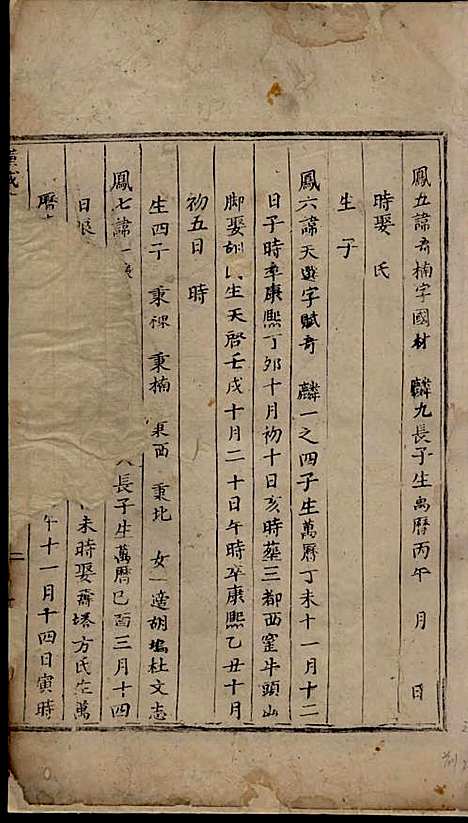 鳳五諱奇楠字國材 麟九長子生萬曆丙午 月 日
時娶 氏
生 子
鳳六諱天選字賦奇 麟一之四子生萬曆丁未十一月十二
日子時卒康熙丁卯十月初十日亥時葬三都西窰牛頭山
脚娶胡氏生天啓壬戌十月二十日午時卒康熙乙丑十月
初五日 時
生四子 秉稷 秉楠 東西 秉北 女一適胡塢杜文志
鳳七諱 長子生萬曆己酉三月十四
日 未時娶齋塔方氏生萬
曆 午十一月十四日寅時